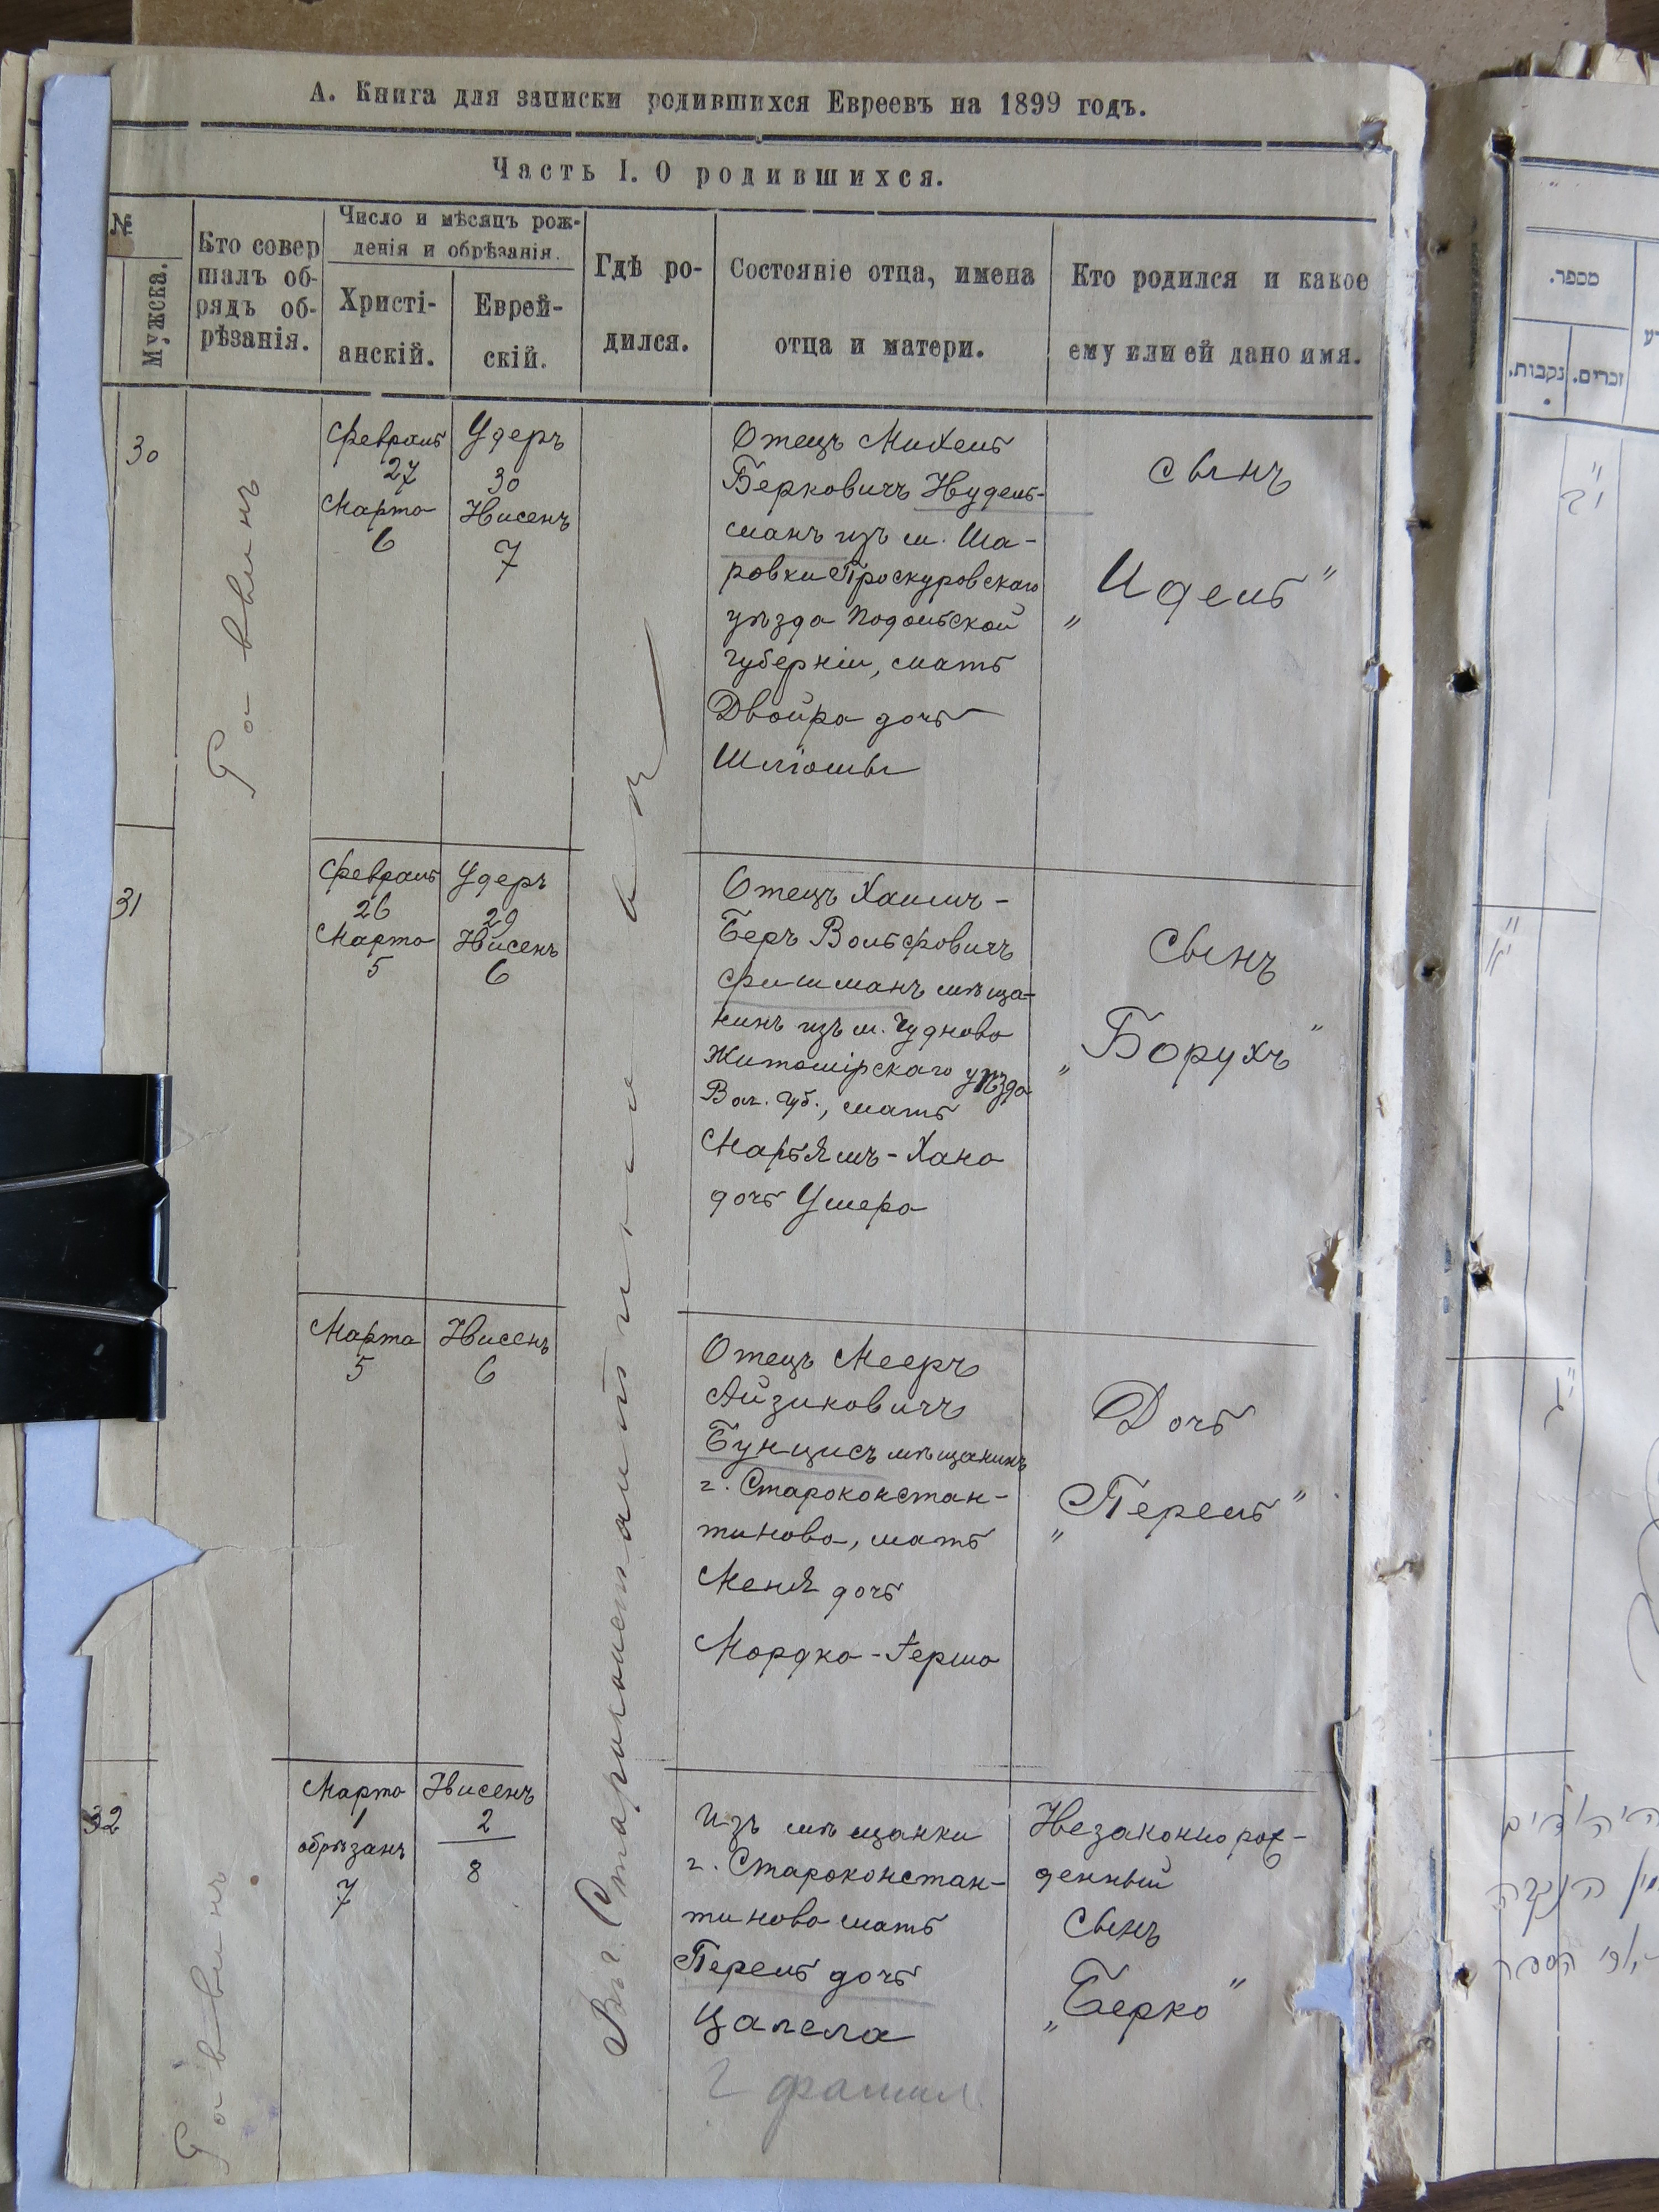 А. Книга для записки родившихся Евреевъ на 1899 годъ.
Часть I. О родившихся.
№
Мужска.
Кто совер
шалъ об-
рядъ об-
рѣзанія.
Число и мѣсяцъ рож-
денія и обрѣзанія.
Христі-
анскій.
Еврей-
скій.
Гдѣ ро-
дился.
Состояніе отца, имена
отца и матери.
Кто родился и какое
ему или ей дано имя.
30
Раввинъ
Февраль
27
Марта
6
Удеръ
30
Нисенъ
7
Въ г. Староконстантиновѣ
Отецъ Михель
Берковичъ Нудель-
манъ изъ м. Ша-
ровки Проскуровскаго
уѣзда Подольской
губерніи, мать
Двойра дочь
Шліомы
сынъ
"Идель"
31
Февраль
26
Марта
5
Удеръ
29
Нисенъ
6
Отецъ Хаимъ-
Беръ Вольфовичъ
Фишманъ мѣща-
нинъ изъ м. Чуднова
Житомірскаго уѣзда
Вол. губ., мать
Марьямъ-Хана
дочь Ушера
Сынъ
"Борухъ"
Марта
5
Нисенъ
6
Отецъ Мееръ
Айзиковичъ
Бунцисъ мѣщанинъ
г. Староконстан-
тинова, мать
Меня дочь
Мордко-Герша
Дочь
"Перель"
32
Раввинъ
Марта
1
обрѣзанъ
7
Нисенъ
2
8
Изъ мѣщанки
г. Староконстан-
тинова мать
Перель дочь
Цалела
Незаконнорож-
денный
Сынъ
"Берко"
מספר.
זכרים.
נקבות.